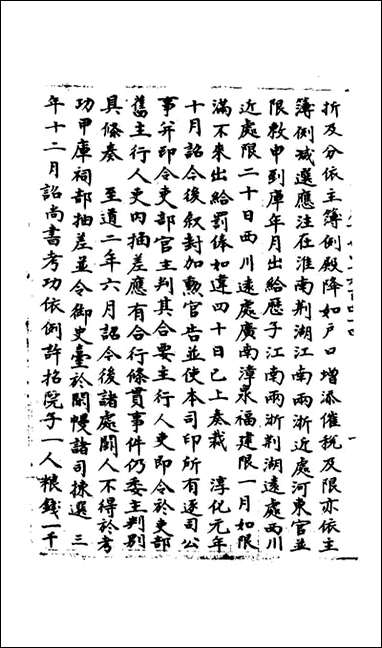 折及分依主簿例殿降如戸口增添催稅及限亦依主
簿例减選應注在淮南荆湖江南兩浙近處河東官並
限敕申到庫年月出給歷子江南兩浙荆湖遠處西川
近處限二十日西川遠處廣南漳泉福建限一月如限
滿不來出給罰俸如違四十日已上奏裁　淳化元年
十月詔令後叙封加勲官告並使本司印所有逐司公
事并印令吏部官主判其合要主行人吏即令於吏部
舊主行人吏内抽差應有合行條貫事件仍委主判别
具條奏　至道二年六月詔今後諸處闕人不得於考
功甲庫祠部抽差並令御史臺於閑慢諸司揀選　三
年十二月詔尚書考功依例許招院子一人粮錢一千